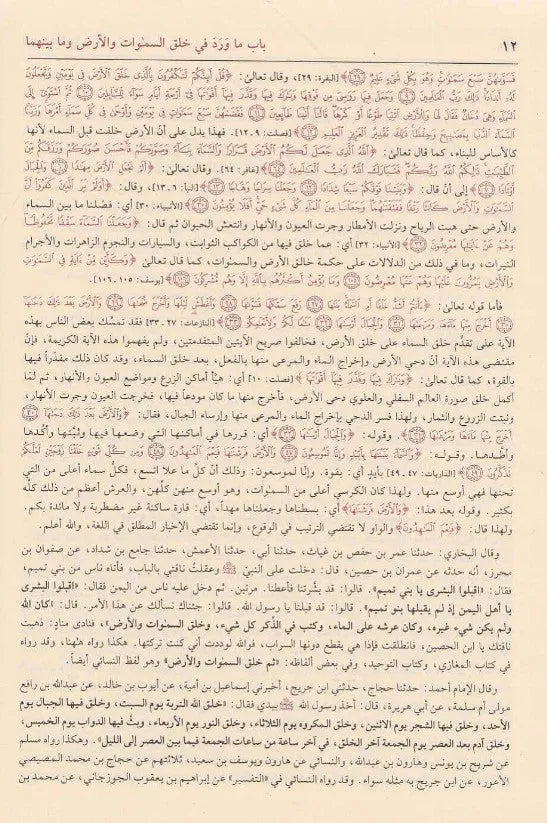 ١٢ باب ما وَرَدَ في خلق السمٰوات والأرض وما بينهما
فَسَوَّىٰهُنَّ سَبْعَ سَمَٰوَٰتٍ وَهُوَ بِكُلِّ شَىْءٍ عَلِيمٌ﴾ [البقرة: ٢٩]، وقال تعالىٰ: ﴿قُلْ أَئِنَّكُمْ لَتَكْفُرُونَ بِٱلَّذِى خَلَقَ ٱلْأَرْضَ فِى يَوْمَيْنِ وَتَجْعَلُونَ
لَهُۥٓ أَندَادًا ذَٰلِكَ رَبُّ ٱلْعَٰلَمِينَ وَجَعَلَ فِيهَا رَوَٰسِىَ مِن فَوْقِهَا وَبَٰرَكَ فِيهَا وَقَدَّرَ فِيهَآ أَقْوَٰتَهَا فِىٓ أَرْبَعَةِ أَيَّامٍ سَوَآءً لِّلسَّآئِلِينَ ثُمَّ ٱسْتَوَىٰٓ إِلَى
ٱلسَّمَآءِ وَهِىَ دُخَانٌ فَقَالَ لَهَا وَلِلْأَرْضِ ٱئْتِيَا طَوْعًا أَوْ كَرْهًا قَالَتَآ أَتَيْنَا طَآئِعِينَ فَقَضَىٰهُنَّ سَبْعَ سَمَٰوَاتٍ فِى يَوْمَيْنِ وَأَوْحَىٰ فِى كُلِّ سَمَآءٍ أَمْرَهَا وَزَيَّنَّا
ٱلسَّمَآءَ ٱلدُّنْيَا بِمَصَٰبِيحَ وَحِفْظًا ذَٰلِكَ تَقْدِيرُ ٱلْعَزِيزِ ٱلْعَلِيمِ﴾ [فصلت: ٩ـ١٢]. فهذا يدل علىٰ أنَّ الأرض خلقت قبل السماء لأنها
كالأساس للبناء، كما قال تعالىٰ: ﴿ٱللَّهُ ٱلَّذِى جَعَلَ لَكُمُ ٱلْأَرْضَ قَرَارًا وَٱلسَّمَآءَ بِنَآءً وَصَوَّرَكُمْ فَأَحْسَنَ صُوَرَكُمْ وَرَزَقَكُم مِّنَ
ٱلطَّيِّبَٰتِ ذَٰلِكُمُ ٱللَّهُ رَبُّكُمْ فَتَبَارَكَ ٱللَّهُ رَبُّ ٱلْعَٰلَمِينَ﴾ [غافر: ٦٤]. وقال تعالىٰ: ﴿أَلَمْ نَجْعَلِ ٱلْأَرْضَ مِهَٰدًا وَٱلْجِبَالَ
أَوْتَادًا﴾ إلىٰ أن قال: ﴿وَبَنَيْنَا فَوْقَكُمْ سَبْعًا شِدَادًا وَجَعَلْنَا سِرَاجًا وَهَّاجًا﴾ [النبأ: ٦ـ١٣]، وقال: ﴿أَوَلَمْ يَرَ ٱلَّذِينَ كَفَرُوٓا۟ أَنَّ
ٱلسَّمَٰوَٰتِ وَٱلْأَرْضَ كَانَتَا رَتْقًا فَفَتَقْنَٰهُمَا وَجَعَلْنَا مِنَ ٱلْمَآءِ كُلَّ شَىْءٍ حَىٍّ أَفَلَا يُؤْمِنُونَ﴾ [الأنبياء: ٣٠] أي: فصَلنا ما بين السماء
والأرض حتىٰ هبت الرياح ونزلت الأمطار وجرت العيون والأنهار وانتعش الحيوان ثم قال: ﴿وَجَعَلْنَا ٱلسَّمَآءَ سَقْفًا مَّحْفُوظًا
وَهُمْ عَنْ ءَايَٰتِهَا مُعْرِضُونَ﴾ [الأنبياء: ٣٢] أي: عما خلق فيها من الكواكب الثوابت، والسيارات والنجوم الزاهرات والأجرام
النيرات، وما في ذلك من الدلالات علىٰ حكمة خالق الأرض والسمٰوات، كما قال تعالىٰ ﴿وَكَأَيِّن مِّنْ ءَايَةٍ فِى ٱلسَّمَٰوَٰتِ
وَٱلْأَرْضِ يَمُرُّونَ عَلَيْهَا وَهُمْ عَنْهَا مُعْرِضُونَ وَمَا يُؤْمِنُ أَكْثَرُهُم بِٱللَّهِ إِلَّا وَهُم مُّشْرِكُونَ﴾ [يوسف: ١٠٥، ١٠٦].
فأما قوله تعالىٰ: ﴿ءَأَنتُمْ أَشَدُّ خَلْقًا أَمِ ٱلسَّمَآءُ بَنَىٰهَا رَفَعَ سَمْكَهَا فَسَوَّىٰهَا وَأَغْطَشَ لَيْلَهَا وَأَخْرَجَ ضُحَىٰهَا وَٱلْأَرْضَ بَعْدَ ذَٰلِكَ دَحَىٰهَآ
أَخْرَجَ مِنْهَا مَآءَهَا وَمَرْعَىٰهَا وَٱلْجِبَالَ أَرْسَىٰهَا مَتَٰعًا لَّكُمْ وَلِأَنْعَٰمِكُمْ﴾ [النازعات: ٢٧ـ٣٣] فقد تمسَّك بعض الناس بهذه
الآية علىٰ تقدُّم خلق السماء علىٰ خلق الأرض، فخالفوا صريح الآيتين المتقدمتين، ولم يفهموا هذه الآية الكريمة، فإنَّ
مقتضىٰ هذه الآية أنَّ دحي الأرض وإخراج الماء والمرعىٰ منها بالفعل، بعد خلق السماء، وقد كان ذلك مقدّراً فيها
بالقوة، كما قال تعالىٰ: ﴿وَبَٰرَكَ فِيهَا وَقَدَّرَ فِيهَآ أَقْوَٰتَهَا﴾ [فصلت: ١٠] أي: هيَّأ أماكن الزرع ومواضع العيون والأنهار، ثم لمّا
أكمل خلق صورة العالم السفلي والعلوي دحىٰ الأرض، فأخرج منها ما كان مودعاً فيها، فخرجت العيون وجرت الأنهار،
ونبتت الزروع والثمار، ولهذا فسر الدحي بإخراج الماء والمرعىٰ منها وإرساء الجبال، فقال: ﴿وَٱلْأَرْضَ بَعْدَ ذَٰلِكَ دَحَىٰهَآ
أَخْرَجَ مِنْهَا مَآءَهَا وَمَرْعَىٰهَا﴾. وقوله: ﴿وَٱلْجِبَالَ أَرْسَىٰهَا﴾ أي: قررها في أماكنها التي وضعها فيها وثبَّتها وأكَّدها
وأطَّدها. وقوله: ﴿وَٱلسَّمَآءَ بَنَيْنَٰهَا بِأَيْي۟دٍ وَإِنَّا لَمُوسِعُونَ وَٱلْأَرْضَ فَرَشْنَٰهَا فَنِعْمَ ٱلْمَٰهِدُونَ وَمِن كُلِّ شَىْءٍ خَلَقْنَا زَوْجَيْنِ لَعَلَّكُمْ
تَذَكَّرُونَ﴾ [الذاريات: ٤٧ـ٤٩] بأيدٍ أي: بقوة. وإنّا لموسعون: وذلك أنّ كلَّ ما علا اتسع، فكلُّ سماء أعلىٰ من التي
تحتها فهي أوسع منها. ولهذا كان الكرسي أعلىٰ من السمٰوات، وهو أوسع منهن كلهن، والعرش أعظم من ذلك كلّه
بكثير. وقوله بعد هذا: ﴿وَٱلْأَرْضَ فَرَشْنَٰهَا﴾ أي: بسطناها وجعلناها مهداً، أي: قارة ساكنة غير مضطربة ولا مائدة بكم.
ولهذا قال: ﴿فَنِعْمَ ٱلْمَٰهِدُونَ﴾ والواو لا تقتضي الترتيب في الوقوع، وإنما تقتضي الإخبار المطلق في اللغة، والله أعلم.
وقال البخاري: حدثنا عمر بن حفص بن غياث، حدثنا أبي، حدثنا الأعمش، حدثنا جامع بن شداد، عن صفوان بن
محرز، أنه حدثه عن عمران بن حصين، قال: دخلت على النبي ﷺ وعقلتُ ناقتي بالباب، فأتاه ناس من بني تميم،
فقال: «اقبلوا البشرى يا بني تميم». قالوا: قد بشَّرتنا فأعطنا. مرتين. ثم دخل عليه ناس من اليمن فقال: «اقبلوا البشرى
يا أهل اليمن إذ لم يقبلها بنو تميم». قالوا: قد قبلنا يا رسول الله. قالوا: جئناك نسألك عن هذا الأمر. قال: «كان الله
ولم يكن شيء غيره، وكان عرشه على الماء، وكتب في الذّكر كل شيء، وخلق السمٰوات والأرض». فنادى منادٍ: ذهبت
ناقتك يا ابن الحصين، فانطلقت فإذا هي يقطع دونها السراب، فوالله لوددت أني كنت تركتها. هكذا رواه هٰهنا، وقد رواه
في كتاب المغازي، وكتاب التوحيد، وفي بعض ألفاظه: «ثم خلق السمٰوات والأرض» وهو لفظ النسائي أيضاً.
وقال الإمام أحمد: حدثنا حجاج، حدثني ابن جريج، أخبرني إسماعيل بن أمية، عن أيوب بن خالد، عن عبدالله بن رافع
مولى أم سلمة، عن أبي هريرة، قال: أخذ رسول الله ﷺ بيدي فقال: «خلق الله التربة يوم السبت، وخلق فيها الجبال يوم
الأحد، وخلق فيها الشجر يوم الاثنين، وخلق المكروه يوم الثلاثاء، وخلق النور يوم الأربعاء، وبثَّ فيها الدواب يوم الخميس،
وخلق آدم بعد العصر يوم الجمعة آخر الخلق، في آخر ساعة من ساعات الجمعة فيما بين العصر إلى الليل». وهكذا رواه مسلم
عن شريح بن يونس وهارون بن عبدالله، والنسائي عن هارون ويوسف بن سعيد، ثلاثتهم عن حجاج بن محمد المصيصي
الأعور، عن ابن جريج به مثله سواء. وقد رواه النسائي في «التفسير» عن إبراهيم بن يعقوب الجوزجاني، عن محمد بن